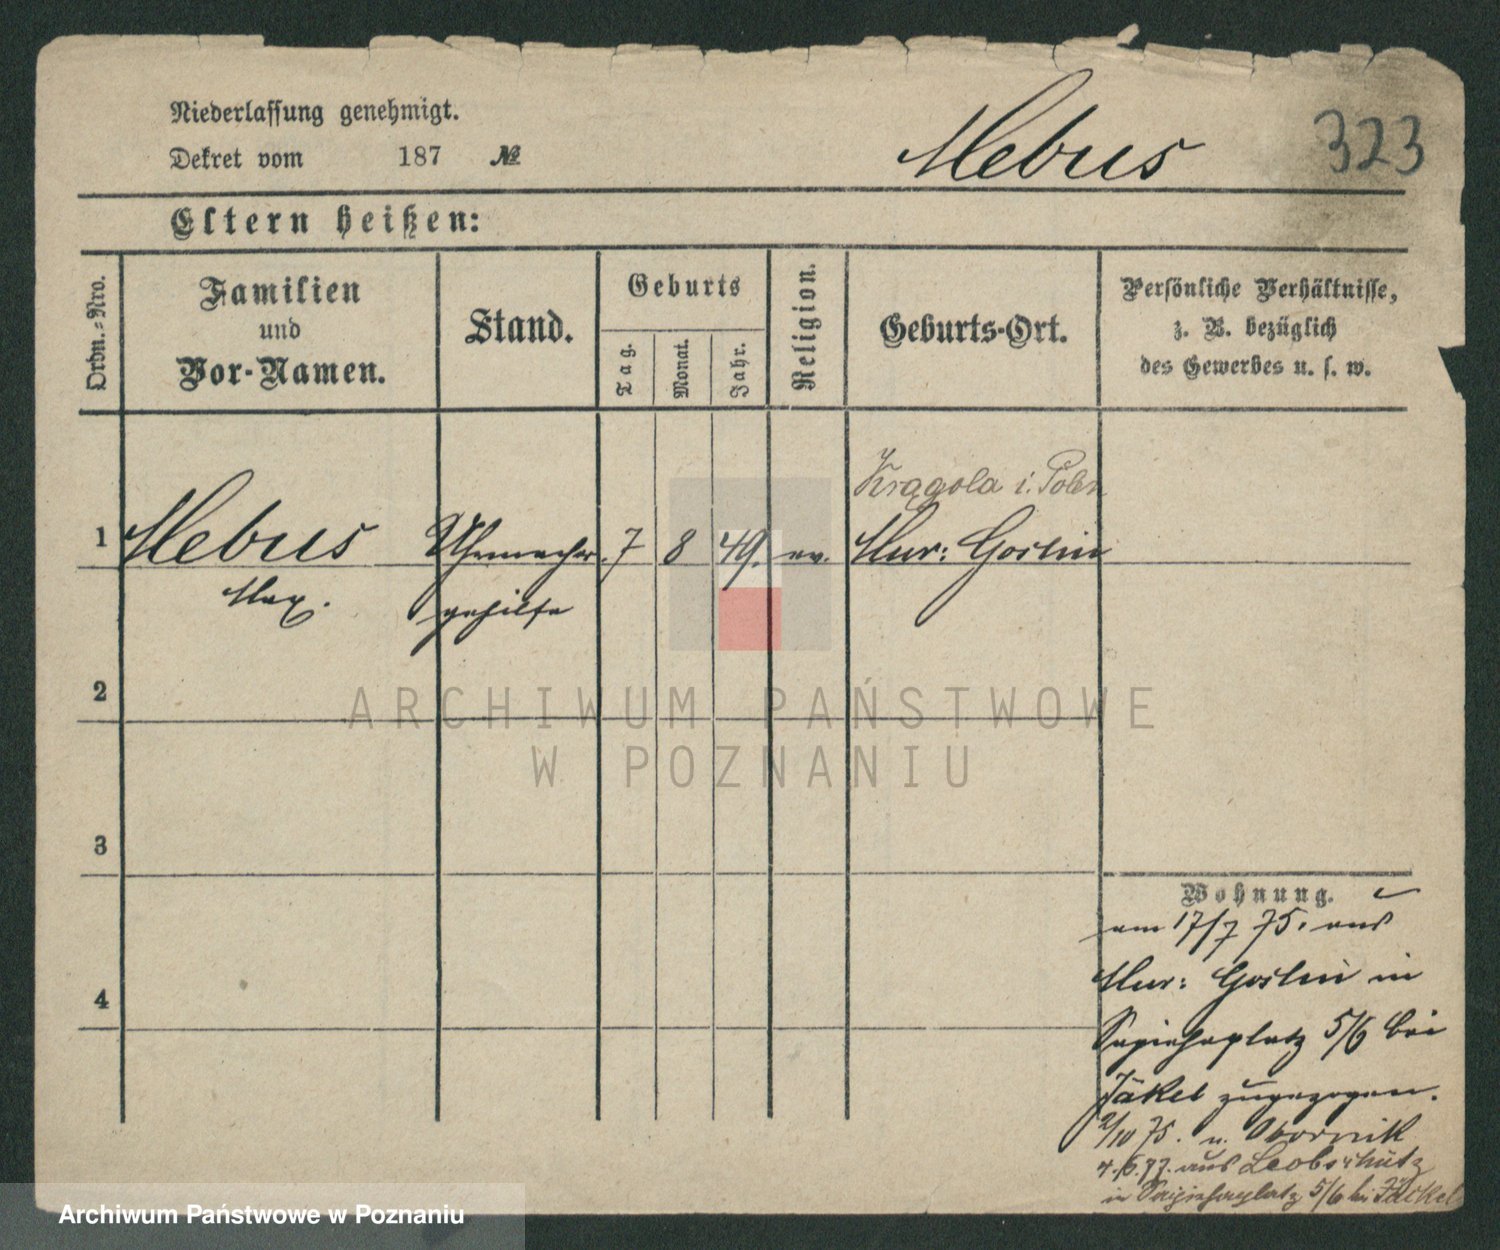 Niederlassung genehmigt.
Dekret vom 187 №
Mebus
323
Eltern heißen:
Ordn.=Nro.
Familien
und
Vor-Namen.
Stand.
Geburts
Tag.
Monat.
Jahr.
Religion.
Geburts-Ort.
Persönliche Verhältnisse,
z. B. bezüglich
des Gewerbes u. s. w.
Krągola i. Polen
1 Mebus Uhrmacher 7 8 49. ev. Mur: Goslin
Max. gehilfe
2
ARCHIWUM PAŃSTWOWE
W POZNANIU
3
4
Wohnung.
am 17/7 75. aus
Mur: Goslin in
Sapiehaplatz 5/6 bei
Jäkel zugezogen.
2/10 75. n. Obornik
4./6.77. aus Leobschütz
in Sapiehaplatz 5/6 bei Jäckel
Archiwum Państwowe w Poznaniu